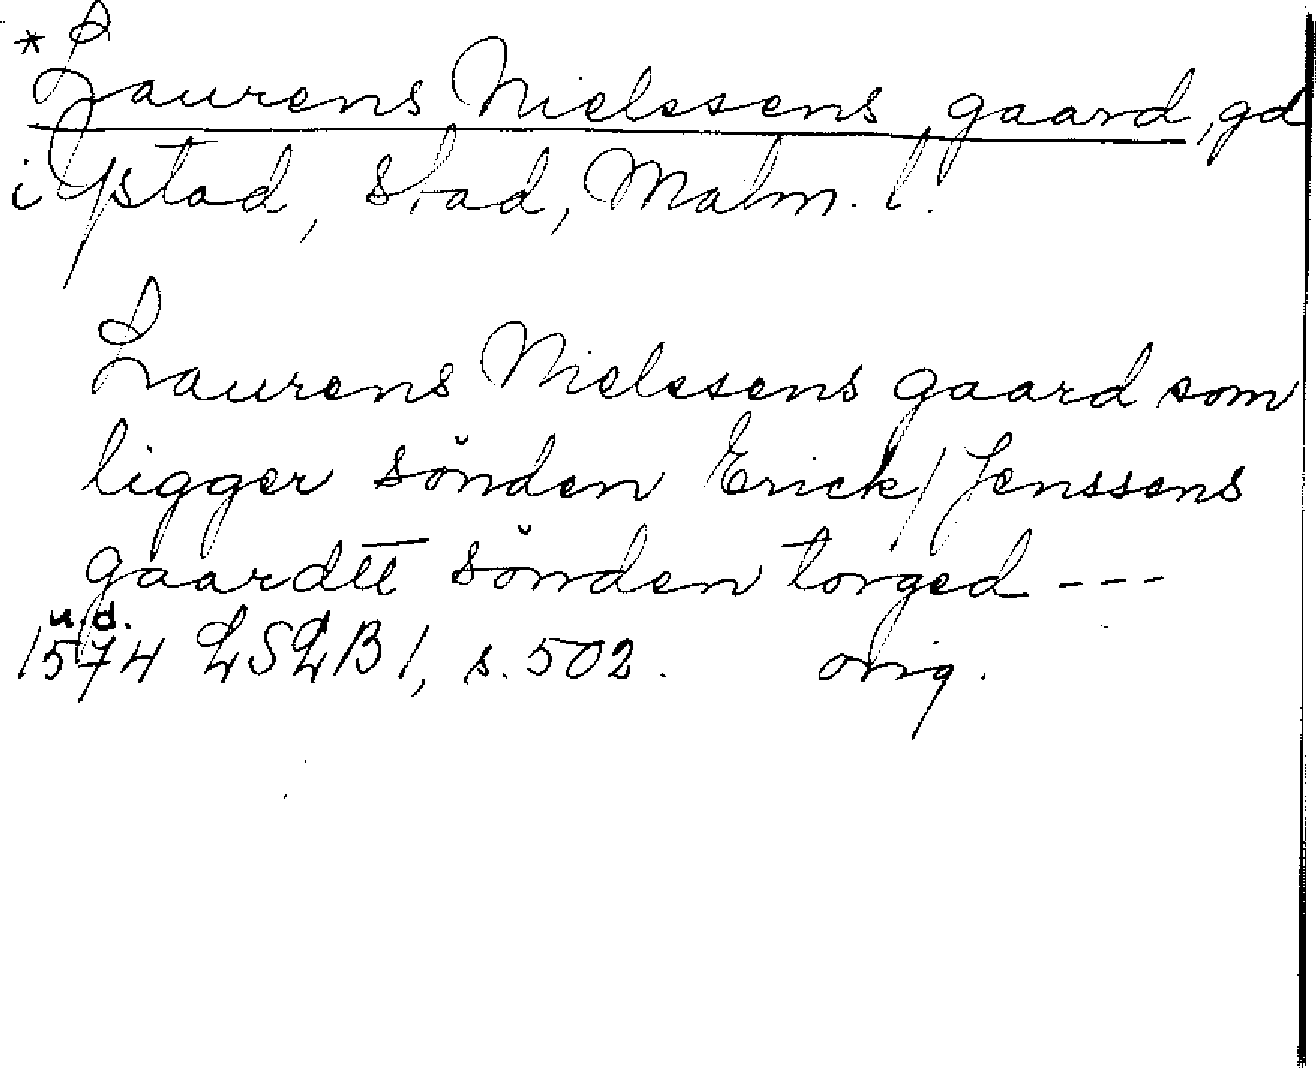 * Laurens Nielssens gaard, gd
i Ystad, stad, Malm. l.
Laurens Nielssens gaard som
ligger sönden Erick / Jenssens
gaardtt sönden torged ---
u.d.
1574 LSLB 1, s. 502. orig.